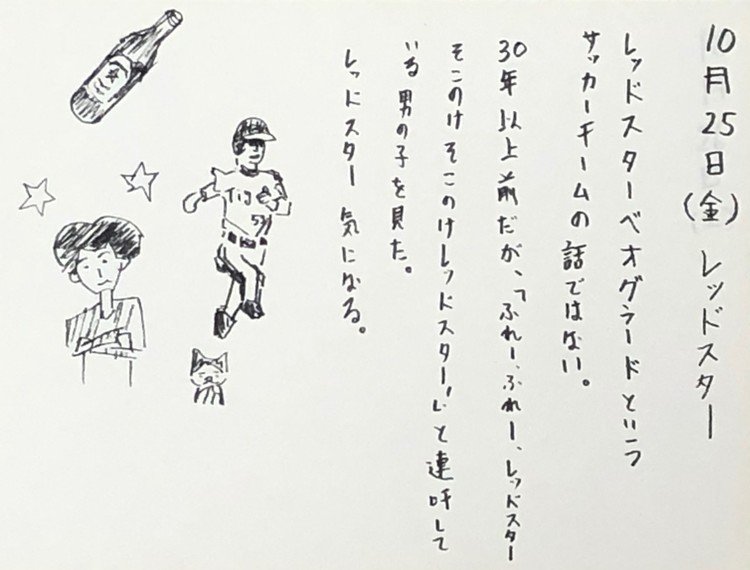 10月25日(金) レッドスター
レッドスターベオグラードという
サッカーチームの話ではない。
30年以上前だが、「ふれー、ふれー、レッドスター
そこのけそこのけレッドスター!」と連呼して
いる男の子を見た。
レッドスター気になる。
TIG
57